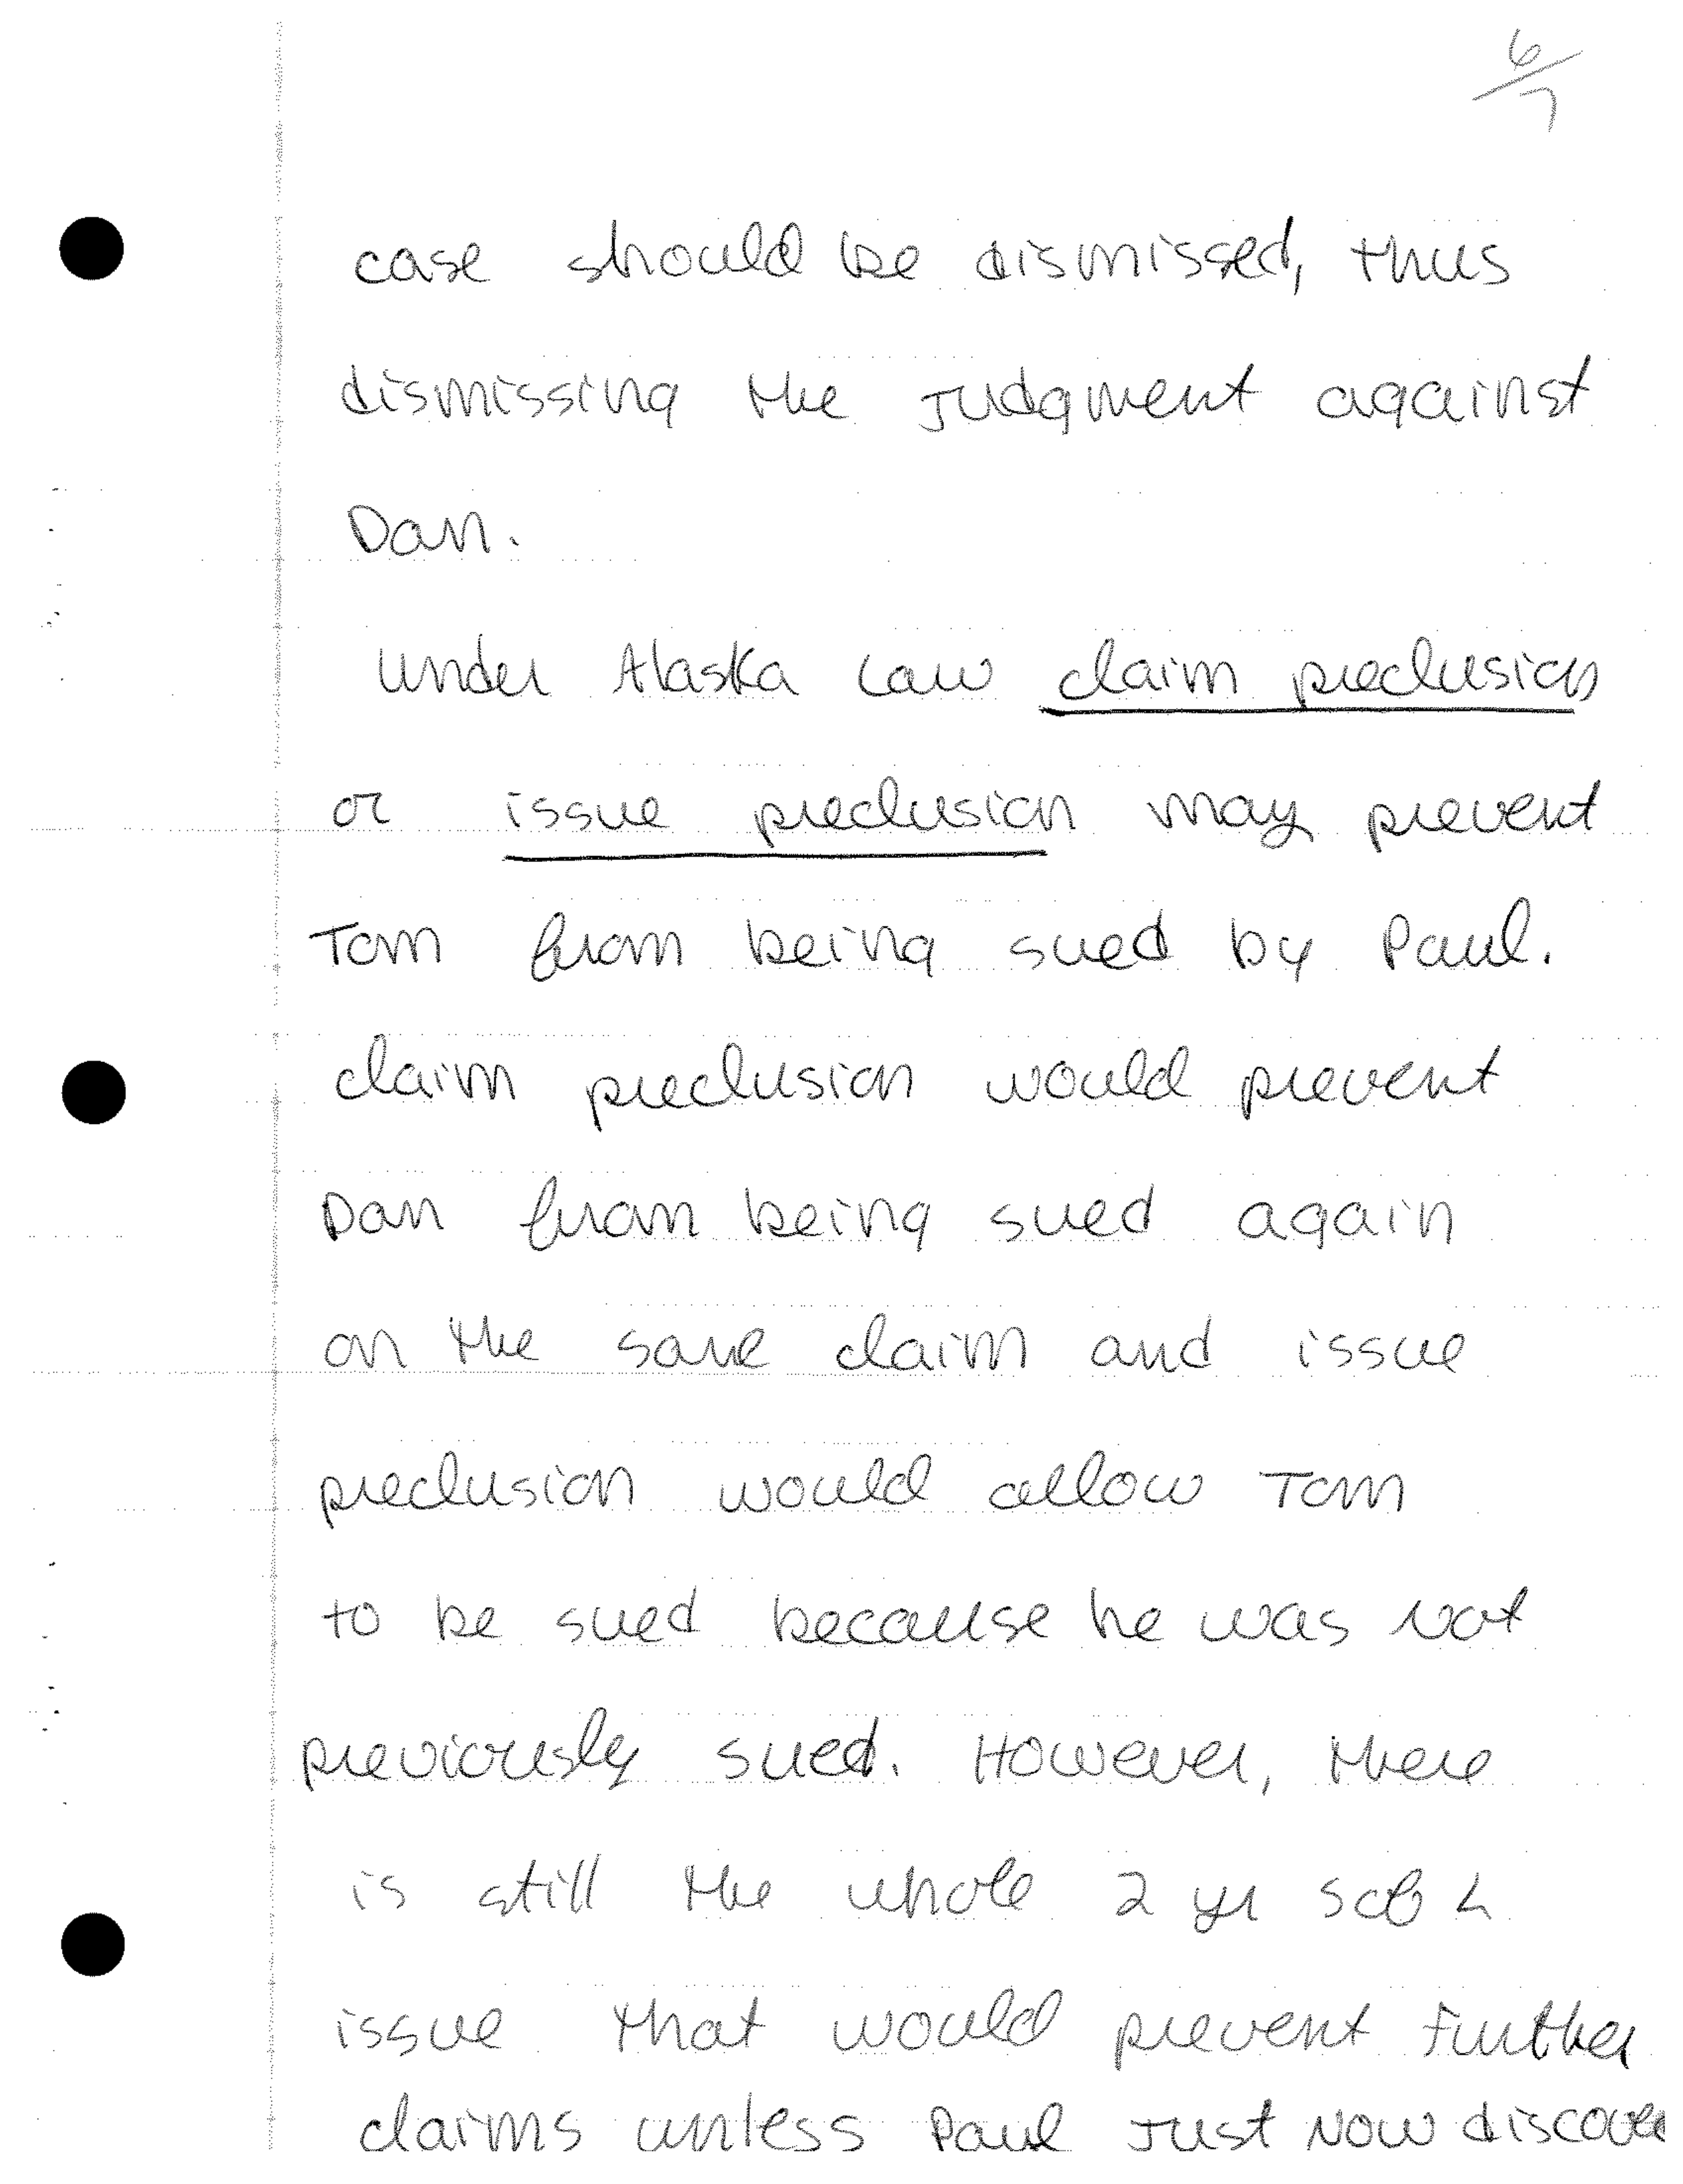 6/7
case should be dismissed, thus
dismissing the judgment against
Dan.
Under Alaska Law claim preclusion
or issue preclusion may prevent
Tom from being sued by Paul.
claim preclusion would prevent
Dan from being sued again
on the same claim and issue
preclusion would allow Tom
to be sued because he was not
previously sued. However, there
is still the whole 2 yr SofL
issue that would prevent further
claims unless Paul just now discover